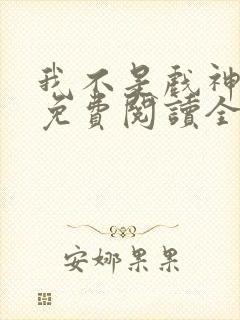 我不是戲神
免費閱讀全
安娜果果